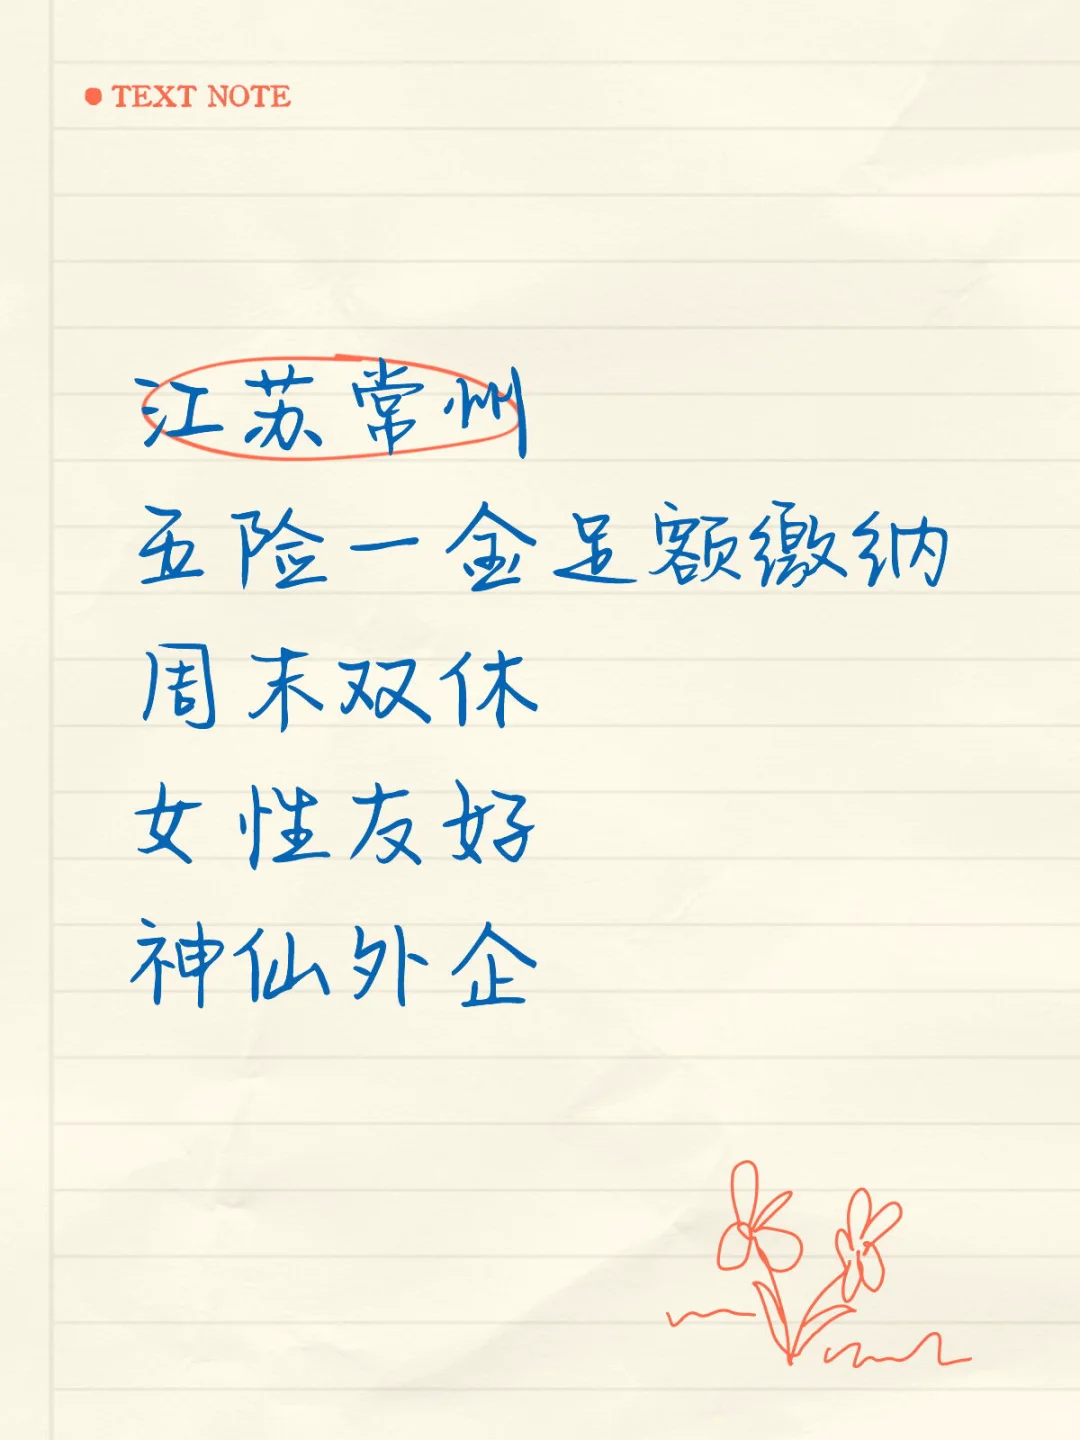 TEXT NOTE
江苏常州
五险一金足额缴纳
周末双休
女性友好
神仙外企